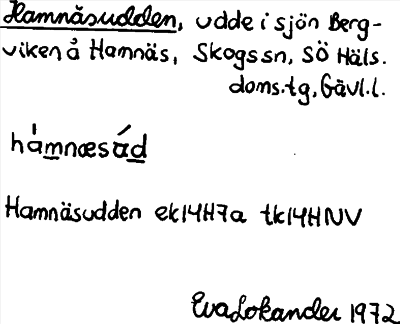 Hamnäsudden, udde i sjön Berg-
viken å Hamnäs, Skogs sn, SÖ Häls.
doms.tg, Gävl.l.
hȧmnæsád
Hamnäsudden ek14H7a tk14HNV
Eva Lokander 1972